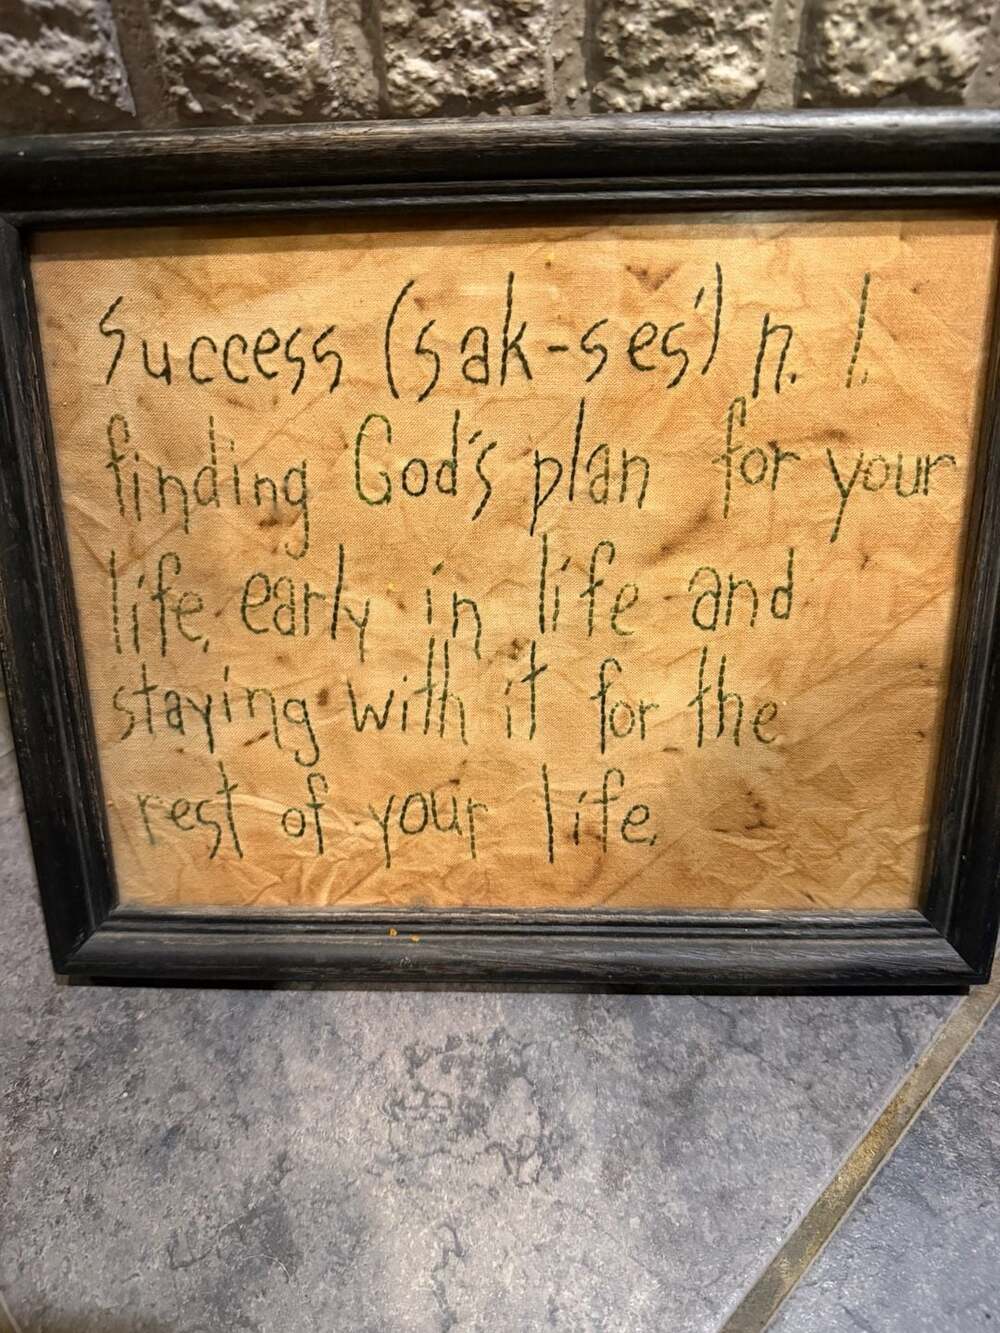 Success (sak-ses') n. 1.
finding God's plan for your
life, early in life and
staying with it for the
rest of your life.